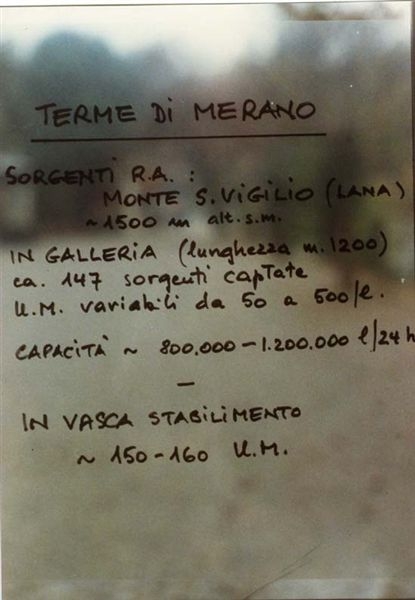 TERME DI MERANO
SORGENTI R.A. :
MONTE S. VIGILIO (LANA)
~ 1500 m alt. s.m.
IN GALLERIA (lunghezza m. 1200)
ca. 147 sorgenti captate
U.M. variabili da 50 a 500/l.
CAPACITÀ ~ 800.000 - 1.200.000 l/24 h
—
IN VASCA STABILIMENTO
~ 150 - 160 U.M.